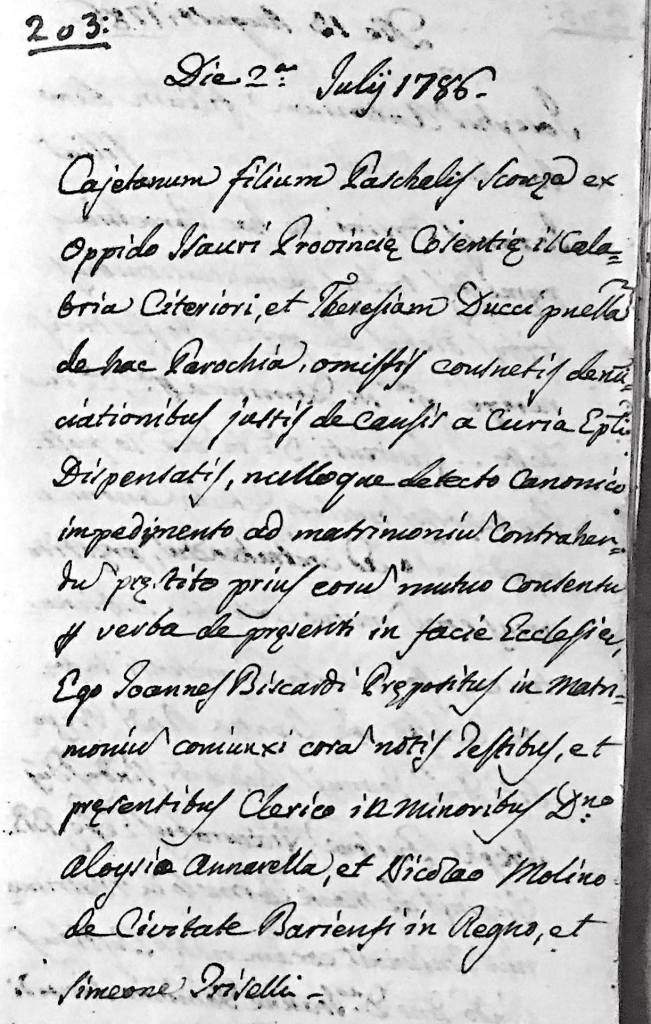 203:
Die 2.a Julÿ 1786.
Cajetanum filium Paschalis Scouza ex
Oppido Isauri Provincię Cosentię i Cala=
bria Citeriori, et Theresiam Ducci puella
de hac Parochia, omissis consuetis denū=
ciationibus justis de causis a Curia Epli
Dispensatis, nulloque detecto Canonico
impedimento ad matrimoniū Contrahen=
dū pręstito prius eorū mutuo Consensu
ꝑ verba de pręsenti in facie Ecclesię,
Ego Joannes Biscardi Prępositus in Matri=
moniū coniunxi corā notis Testibus, et
pręsentibus Clerico in Minoribus Dno
Aloysio Annarella, et Nicolao Molino
de Civitate Bariensi in Regno, et
Simeone Priselli -